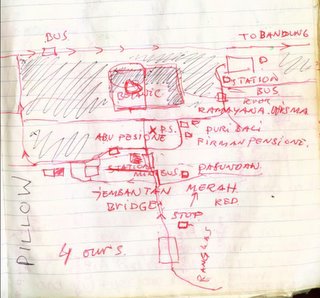 BUS
TO BANDUNG
STATION
BUS
RAMAYANA WISMA
P.S.
PURI BALI
ABU PESIONE
FIRMAN PENSIONE
STATION
MINIBUS
PASUNDAN
JEMBANTAN
MERAH
BRIDGE
RED
STOP
PILLOW
4 OURS.